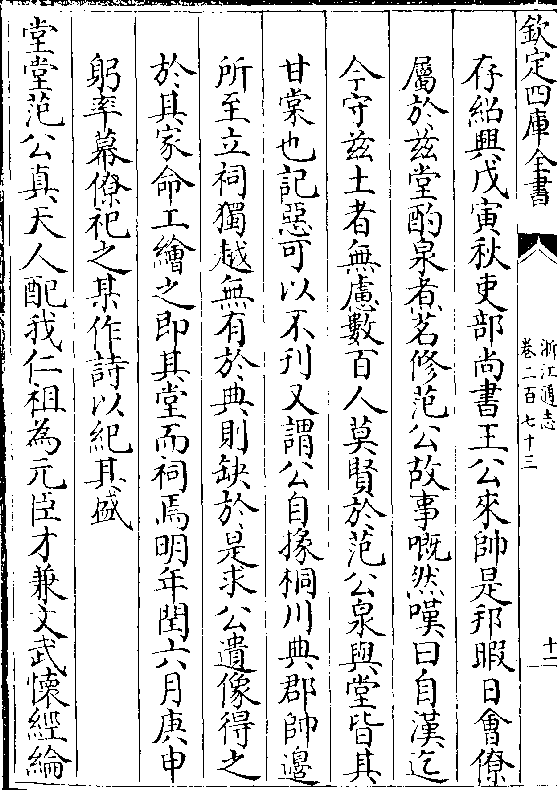 欽定四庫全書
浙江通志
卷二百七十三
十二
存紹興戊寅秋吏部尚書王公來帥是邦暇日會僚
屬於兹堂酌泉煮茗修范公故事嘅然嘆曰自漢迄
今守兹土者無慮數百人莫賢於范公泉與堂皆其
甘棠也記惡可以不刋又謂公自掾桐川典郡帥邊
所至立祠獨越無有於典則缺於是求公遺像得之
於其家命工繪之即其堂而祠焉明年閏六月庚申
躬率幕僚祀之某作詩以紀其盛
堂堂范公真天人配我仁祖為元臣才兼文武懷經綸